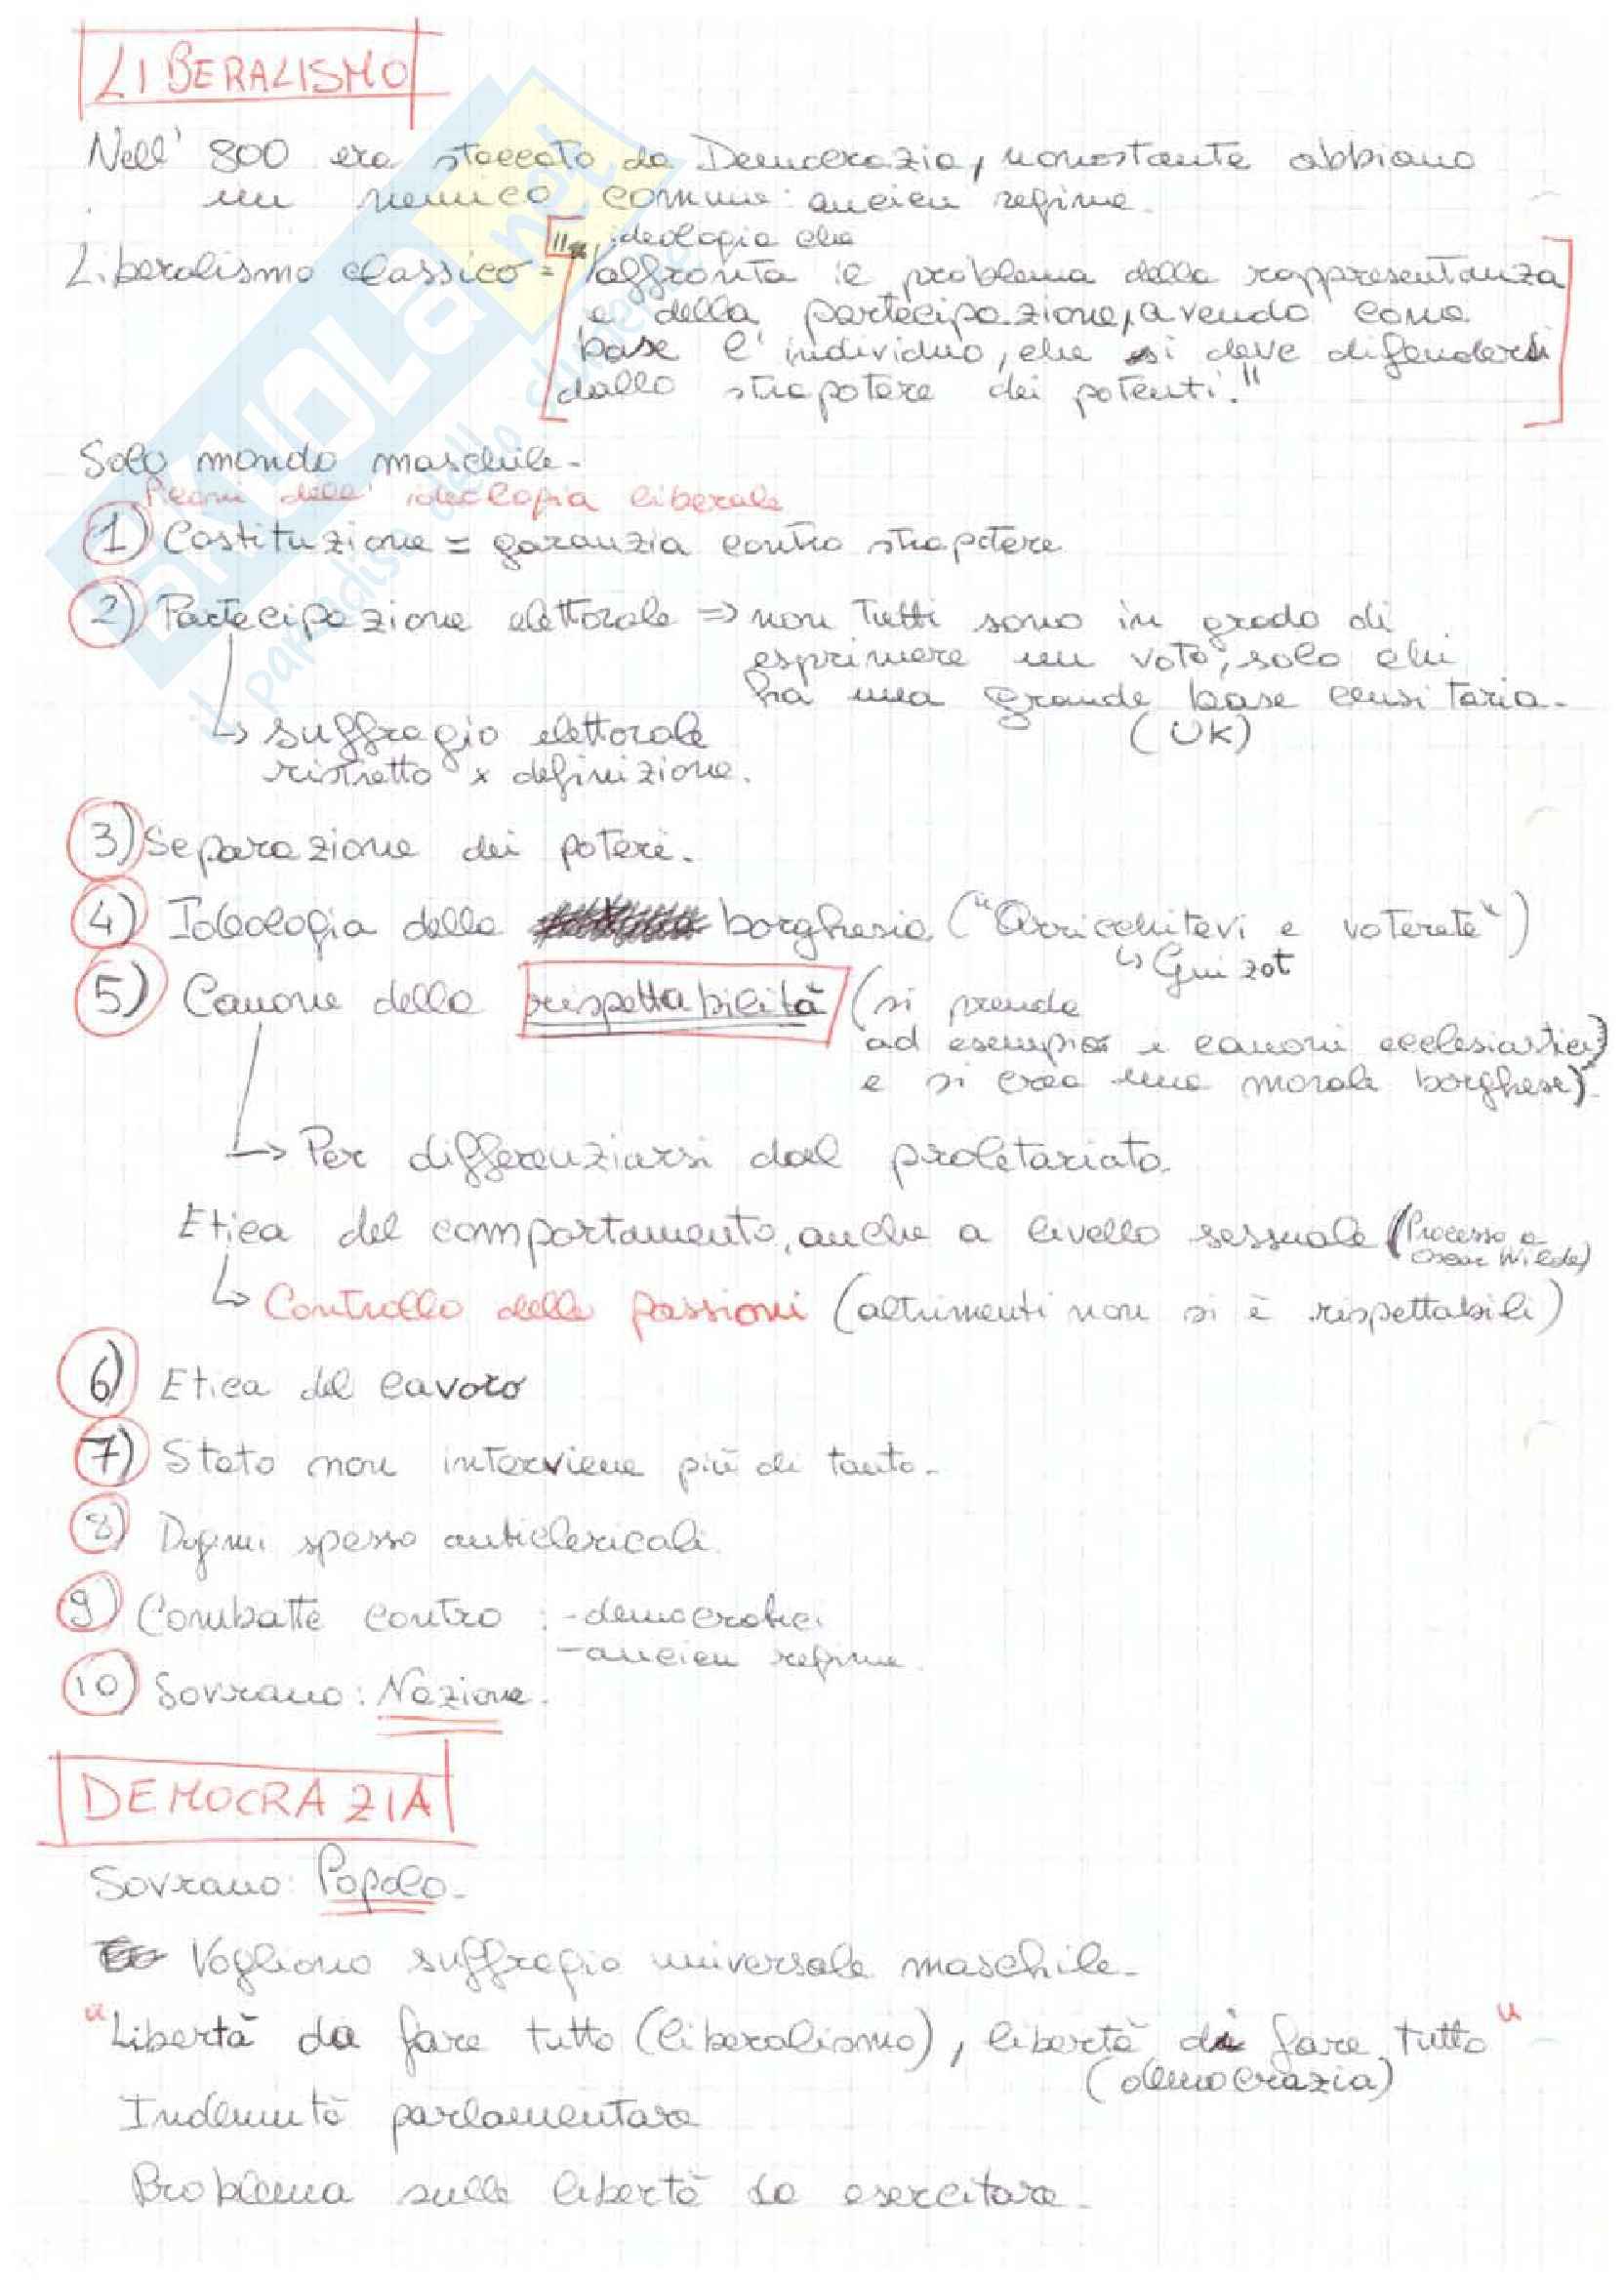 LIBERALISMO
Nell' 800 era staccato da Democrazia, nonostante abbiano
un nemico comune: ancien regime.
ideologia che
Liberalismo classico = "affronta il problema della rappresentanza
e della partecipazione, avendo come
base l'individuo, che si deve difendersi
dallo strapotere dei potenti."
Solo mondo maschile.
dell'ideologia liberale
1) Costituzione = garanzia contro strapotere
2) Partecipazione elettorale => non tutti sono in grado di
esprimere un voto, solo chi
ha una grande base censitaria.
(UK)
↳ suffragio elettorale
ristretto x definizione.
3) Separazione dei poteri.
4) Ideologia della borghesia ("Arricchitevi e voterete")
↳ Guizot
5) Canone della rispettabilità (si prende
ad esempio i canoni ecclesiastici)
e si crea una morale borghese).
↳ Per differenziarsi dal proletariato.
Etica del comportamento, anche a livello sessuale (Processo a
Oscar Wilde)
↳ Controllo delle passioni (altrimenti non si è rispettabili)
6) Etica del lavoro
7) Stato non interviene più di tanto.
8) Dogmi spesso anticlericali.
9) Combatte contro: - democratici
- ancien regime.
10) Sovrano: Nazione.
DEMOCRAZIA
Sovrano: Popolo.
Vogliono suffragio universale maschile.
"Libertà da fare tutto (liberalismo), libertà di fare tutto"
(democrazia)
Indennità parlamentare
Problema sulle libertà da esercitare.
SKUOLA.net
il paradiso dello studente